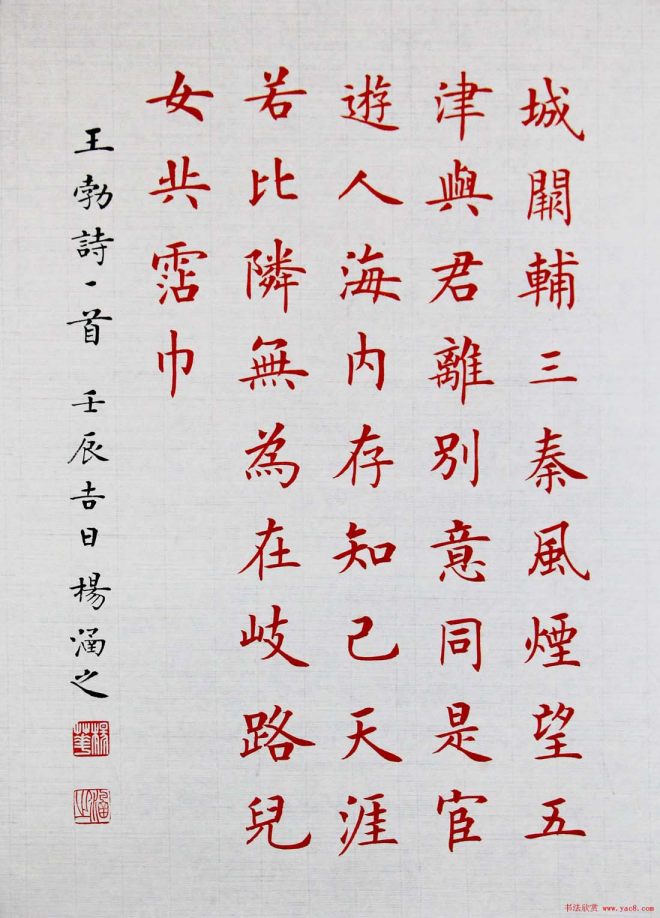 城闕輔三秦風煙望五
津與君離別意同是宦
遊人海内存知己天涯
若比隣無為在岐路兒
女共霑巾
王勃詩一首 壬辰吉日楊涵之
书法欣赏 www.yac8.com